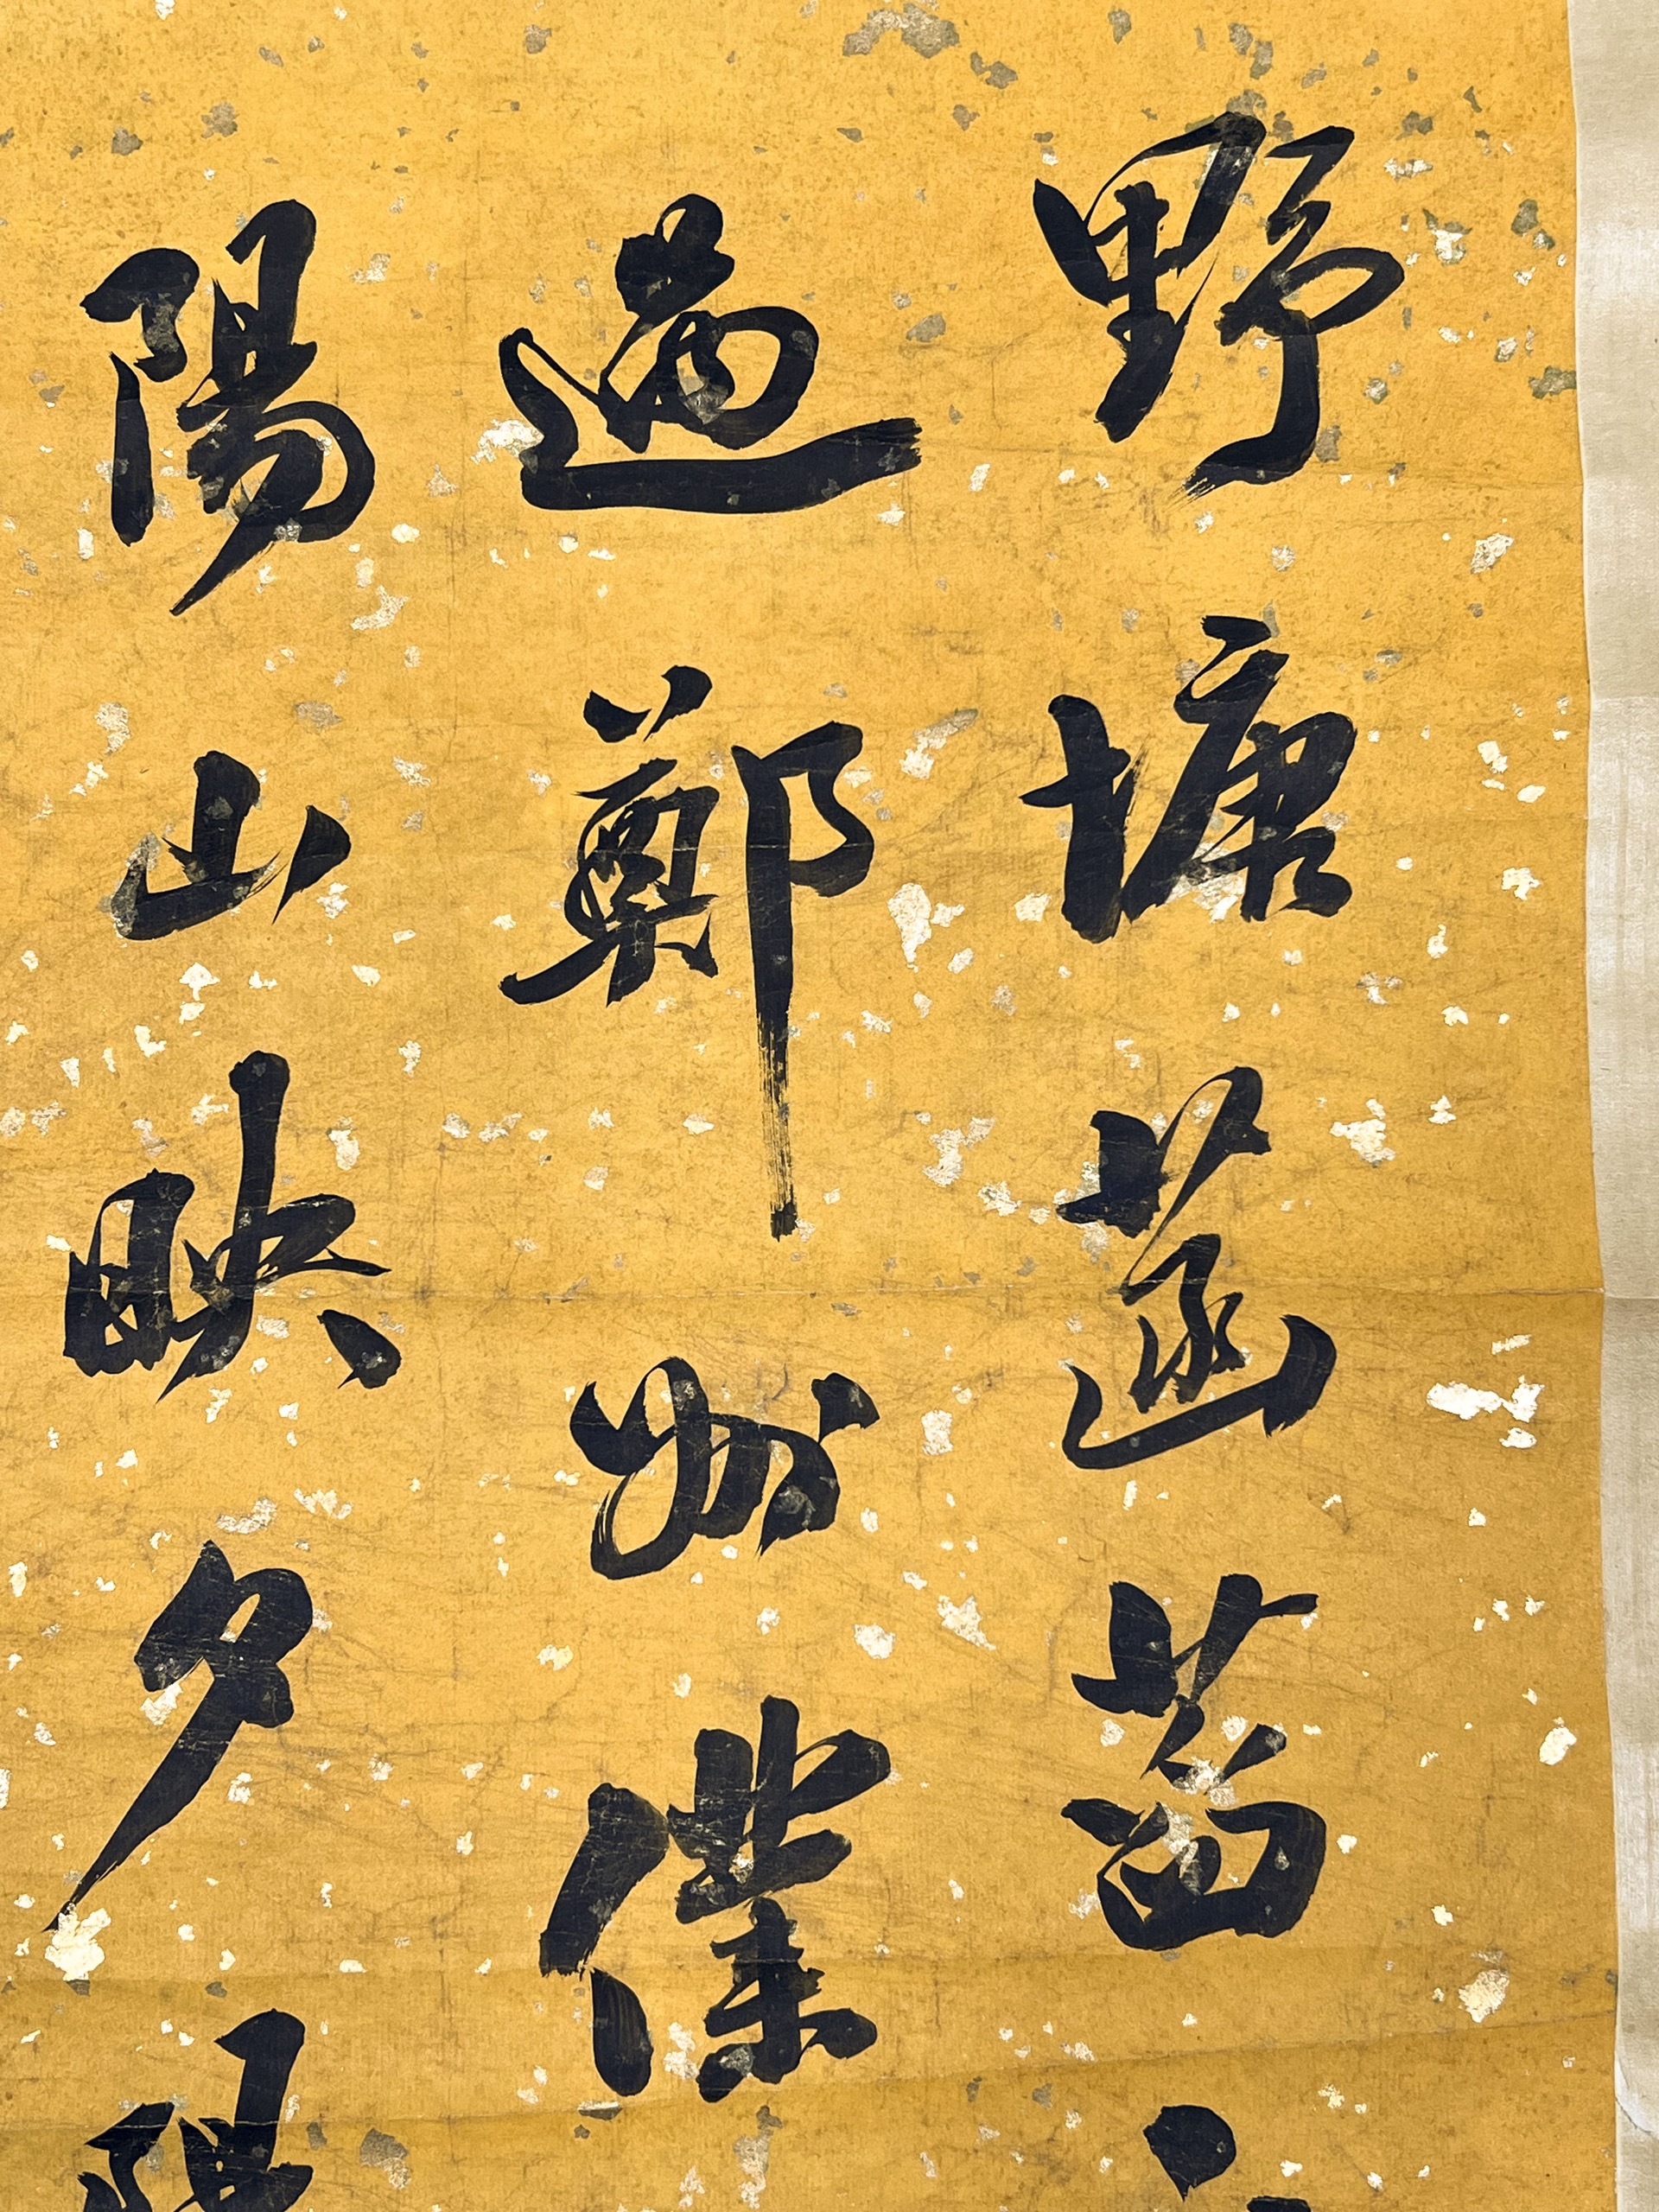 野塘菡萏
過鄭州僕
陽山映夕陽